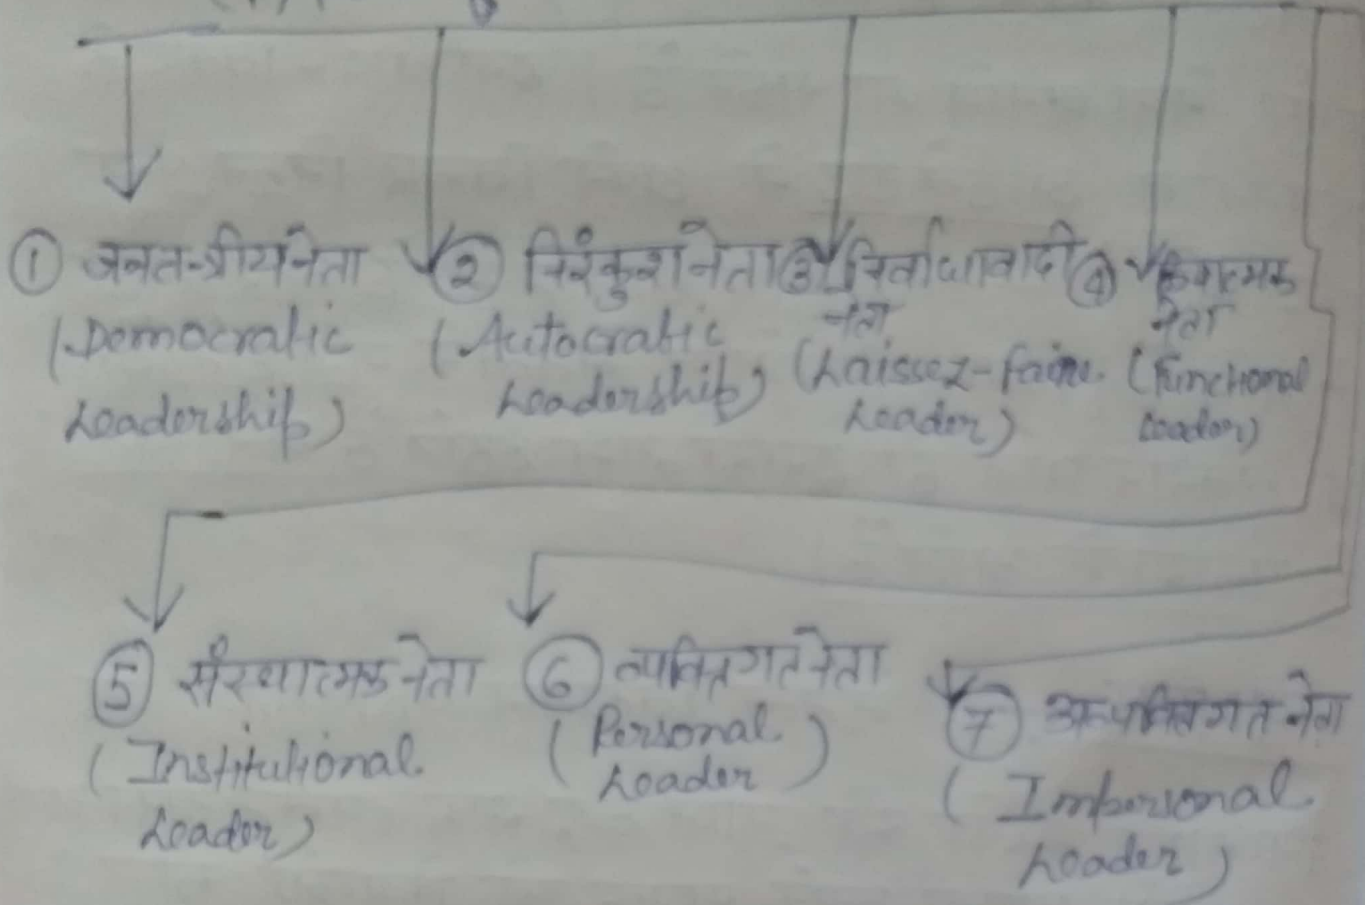 ① जनतन्त्रीय नेता
(Democratic
Leadership)
② निरंकुश नेता
(Autocratic
Leadership)
③ निर्वाधावादी
नेता
(Laissez-faire
Leader)
④ क्रियात्मक
नेता
(Functional
Leader)
⑤ संस्थात्मक नेता
(Institutional
Leader)
⑥ व्यक्तिगत नेता
(Personal
Leader)
⑦ अव्यक्तिगत नेता
(Impersonal
Leader)